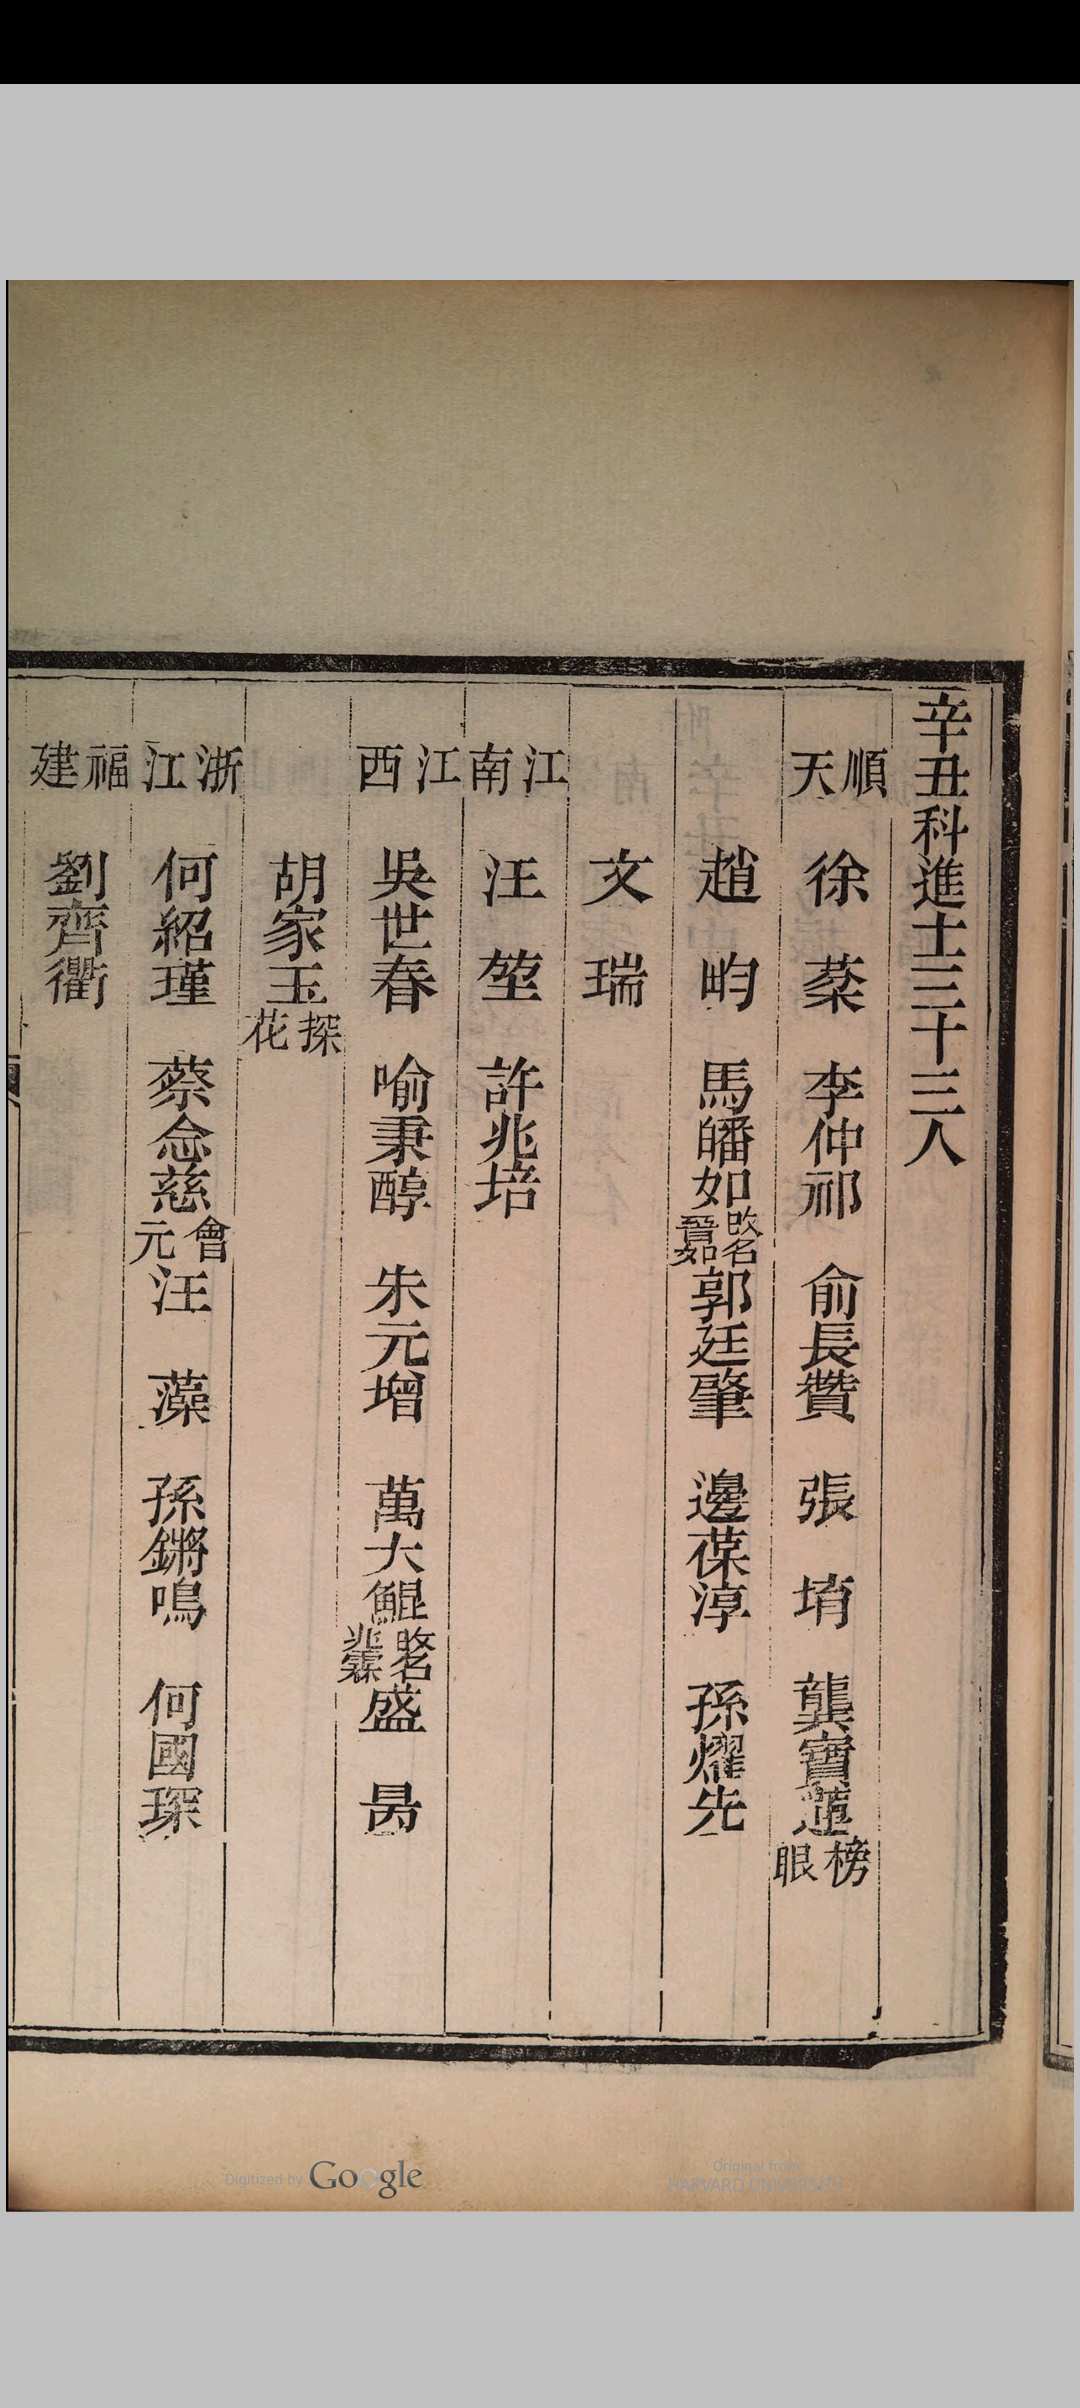 辛丑科進士三十三人
順天 徐棻 李仲祁 俞長贊 張堉 龔寶蓮榜眼
趙畇 馬皤如改名晉如 郭廷肇 邊葆淳 孫燿先
文瑞
江南 汪堃 許兆培
江西 吳世春 喻秉醇 朱元增 萬大鯤改名 盛昺
胡家玉探花
浙江 何紹瑾 蔡念慈會元 汪藻 孫鏘鳴 何國琛
福建 劉齊衢
Digitized by Google
Original from
HARVARD UNIVERSITY